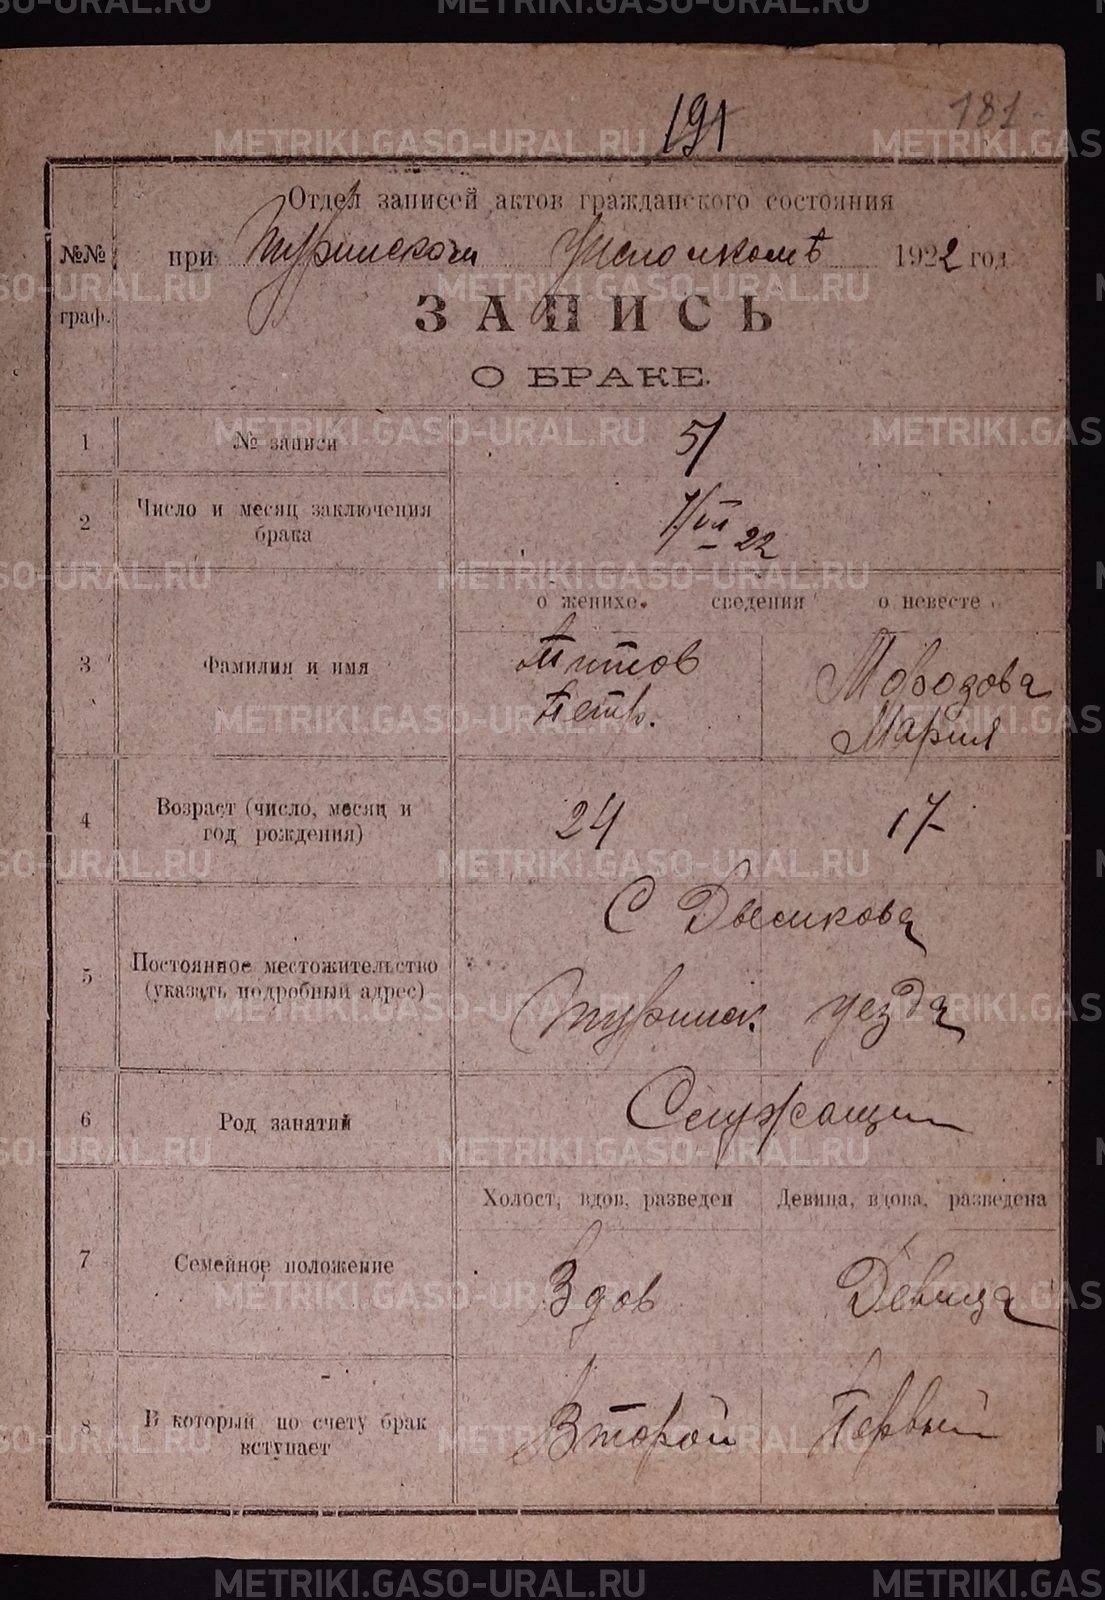 METRIKI.GASO-URAL.RU
191
181
Отдел записей актов гражданского состояния
№№ граф.
при Туринском Уисполкомѣ 1922 год
ЗАПИСЬ
О БРАКЕ.
1 № записи 51
2 Число и месяц заключения брака 7/VII 22
о женихе. сведения о невесте
3 Фамилия и имя Титов Морозова
Петр. Мария
4 Возраст (число, месяц и год рождения) 24 17
С
5 Постоянное местожительство
(указать подробный адрес) Туринск. уезда
6 Род занятий Служащий
Холост, вдов, разведен Девица, вдова, разведена
7 Семейное положение Вдов Девица
8 В который по счету брак вступает Второй Первый